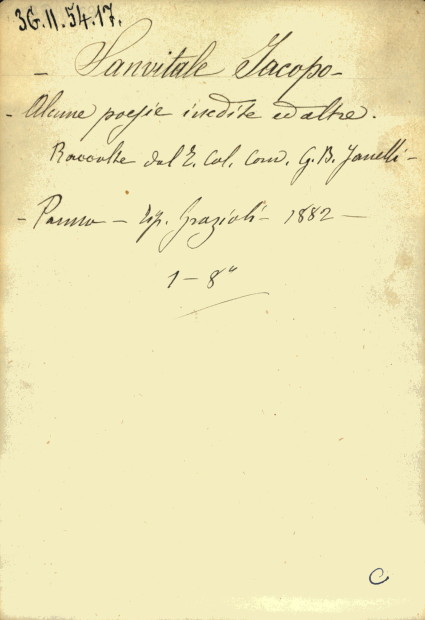 3G.II.54.17.
- Sanvitale Jacopo -
- Alcune poesie inedite ed altre.
Raccolte dal T. Col. Com. G. B. Janelli -
- Parma - Tip. Grazioli - 1882 -
1 - 8°
C